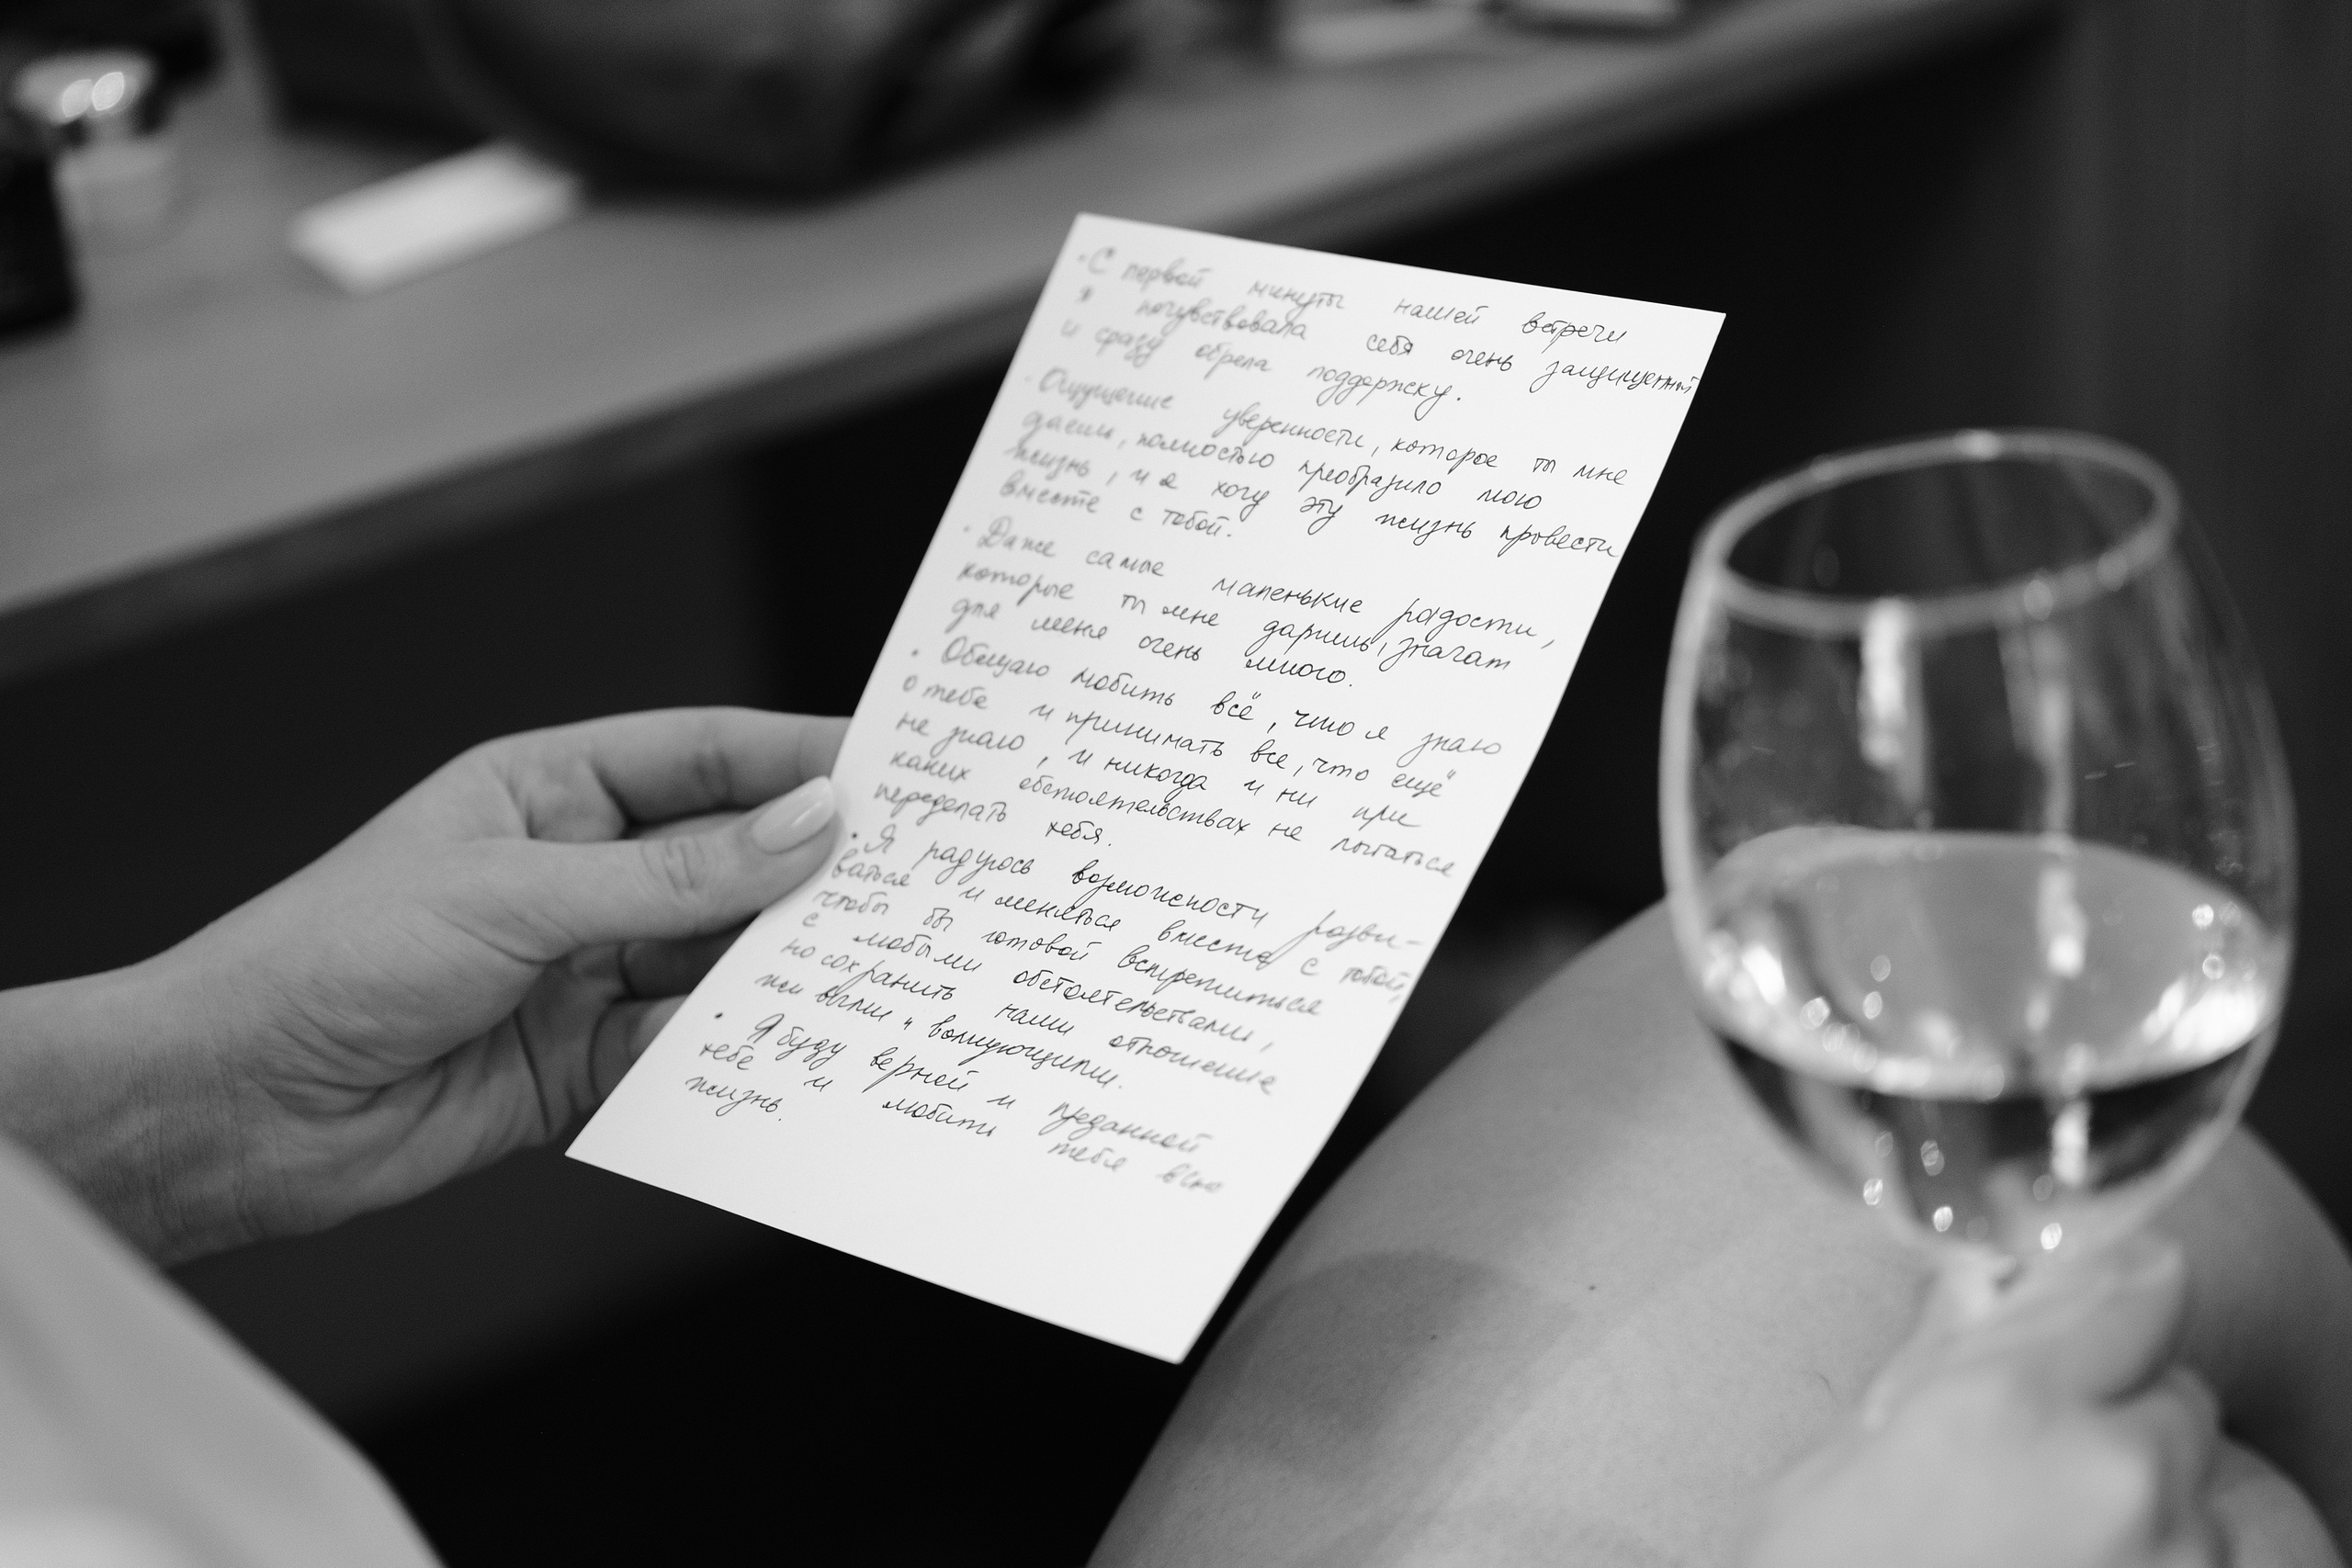 · С первой минуты нашей встречи
я почувствовала себя очень защищенной
и сразу обрела поддержку.
· Ощущение уверенности, которое ты мне
даешь, полностью преобразило мою
жизнь, и я хочу эту жизнь провести
вместе с тобой.
· Даже самые маленькие радости,
которые ты мне даришь, значат
для меня очень много.
· Обещаю любить всё, что я знаю
о тебе и принимать все, что ещё
не знаю, и никогда и ни при
каких обстоятельствах не пытаться
переделать тебя.
· Я радуюсь возможности разви-
ваться и меняться вместе с тобой,
чтобы бы готовой встретиться
с любыми обстоятельствами,
но сохранить наши отношение
живыми и волнующими.
· Я буду верной и преданной
тебе и любить тебя всю
жизнь.